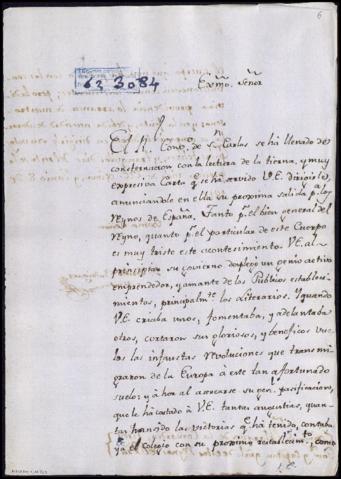 6
62 3084
Exmo. Señor
El Rl. Convo. de Sn. Carlos se há llenado de
consternacion con la lectura de la tierna, y muy
expresiva Carta qe. se há servido V.E. dirigirle,
anunciandole en ella su proxima salida pa. los
Reynos de España. Tanto pr. el bien general del
Reyno, quanto pr. el particular de este Cuerpo
es muy triste este acontecimiento. V.E. al
principiar su govierno desplegó un genio activo
emprendedor, y amante de los Publicos estableci-
mientos, principalmte. los literarios. Y quando
V.E. criaba unos, fomentaba, y adelantaba
otros, cortaron sus gloriosos, y beneficos vue-
los las infaustas revoluciones que transmi-
graron de la Europa á este tan afortunado
suelo: y áhora al acercarse su gen. pacificacion,
que le há costado á V.E. tantas angustias, quan-
tas han sido las victorias qe. há tenido, contaba
ya el colegio con su proximo restablecimto. como